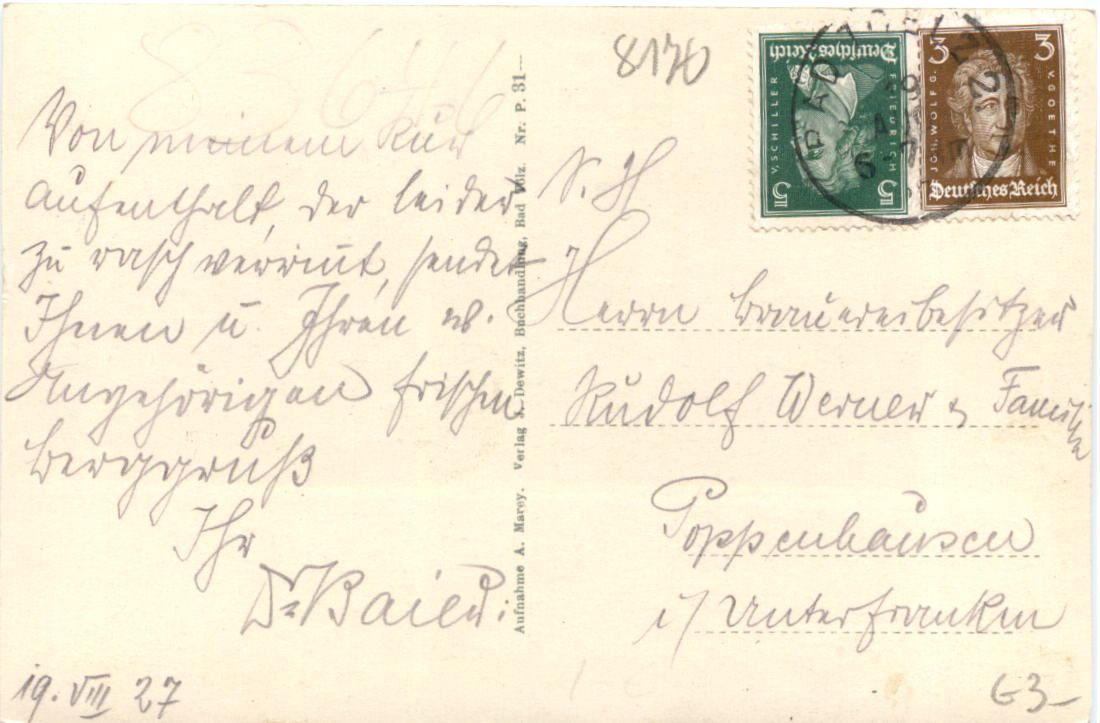 8170
Von meinem Kur
aufenthalt, der leider
zu rasch verrinnt, sendet
Ihnen u. Ihren w.
Angehörigen frischen
Berggruß
Ihr
Dr. Baier.
19. VIII 27
Aufnahme A. Marey. Verlag A. Dewitz, Buchhandlung, Bad Tölz. Nr. P. 31—
V. SCHILLER
FRIEDRICH
Deutsches Reich
5 5
3 3
JOH. WOLFG.
V. GOETHE
Deutsches Reich
BAD TÖLZ 2
S. H
Herrn Brauereibesitzer
Rudolf Werner & Familie
Poppenhausen
i/ Unterfranken
63-